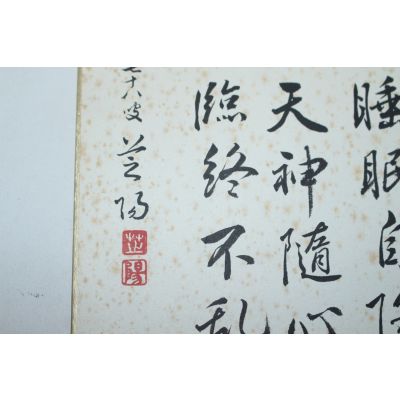 睡眠自除
天神隨心
臨終不乱
七十八叟 芝陽
芝
陽